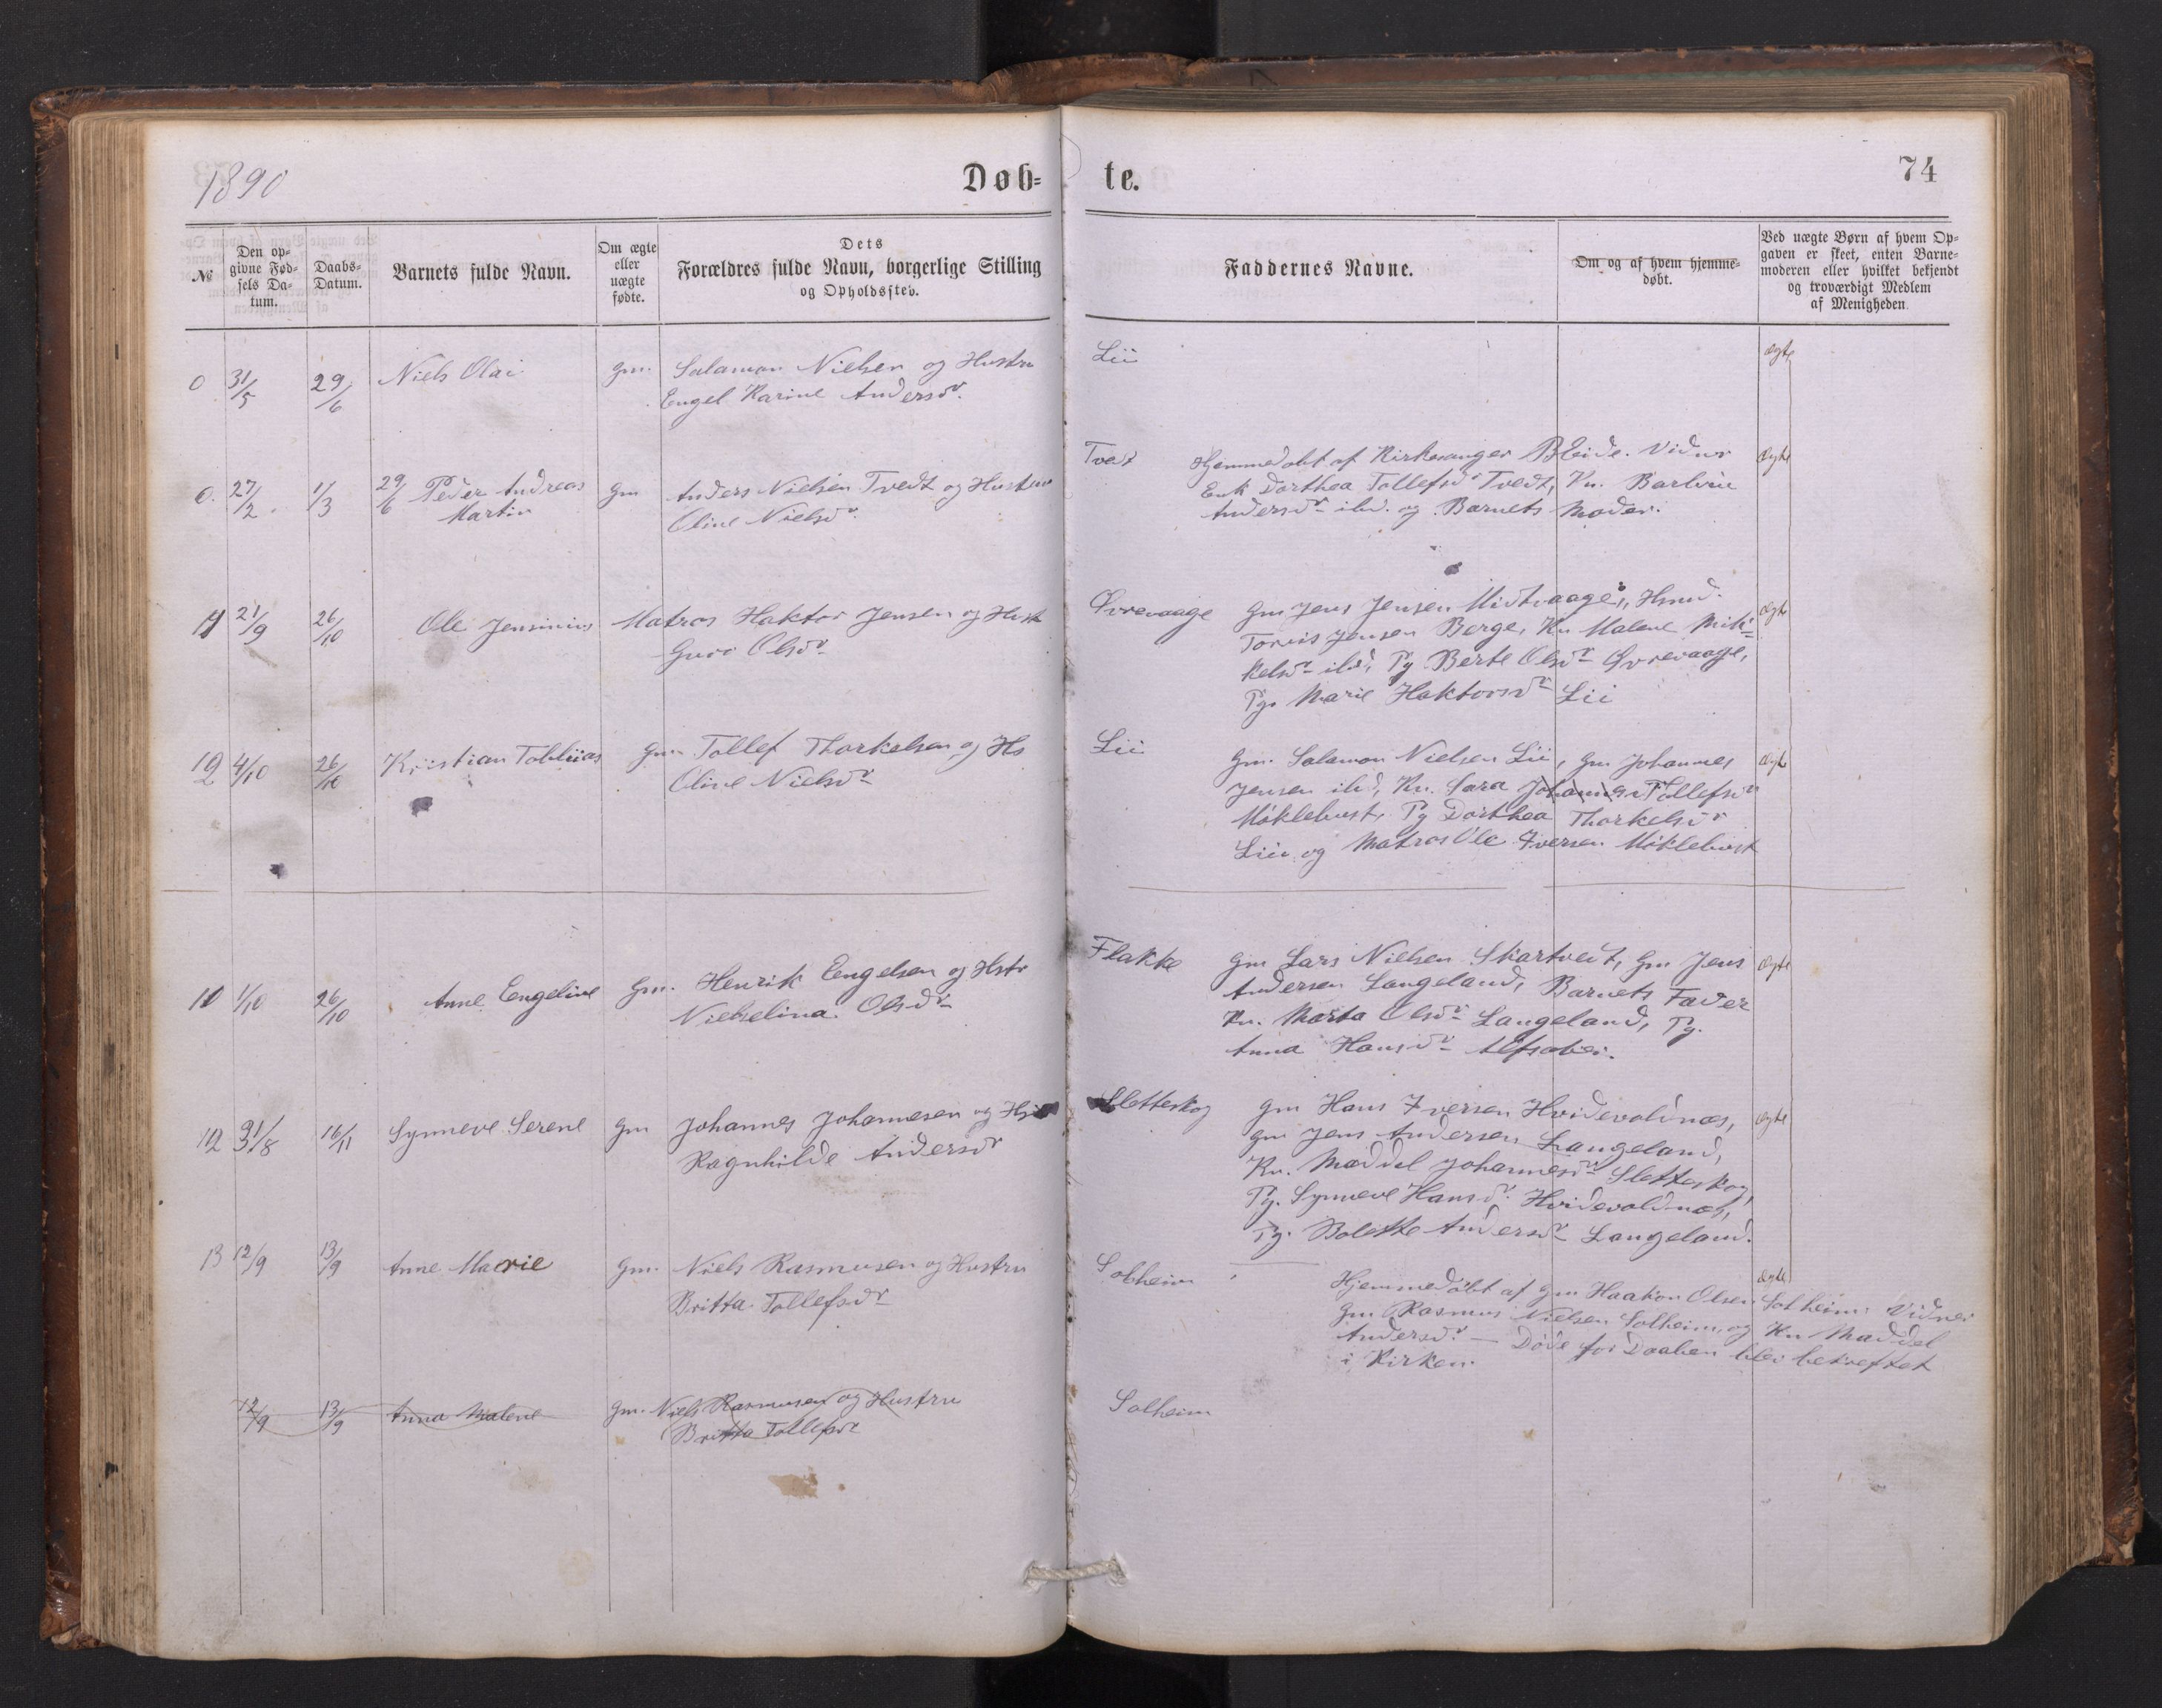 1890
Døb=
te.
74
№
Den op=
givne Fød=
sels Da=
tum.
Daabs=
Datum.
Barnets fulde Navn.
Om ægte
eller
uægte
fødte.
Dets
Forældres fulde Navn, borgerlige Stilling
og Opholdssted.
Faddernes Navne.
Om og af hvem hjemme=
døbt.
Ved uægte Børn af hvem Op=
gaven er skeet, enten Barne=
moderen eller hvilket bekjendt
og troværdigt Medlem
af Menigheden.
0 31/5 29/6 Niels Olai gm. Salamon Nielsen og Hustru
Engel Karine Andersdr.
Lii
ægte
0. 27/2. 1/3 29/6 Peder Andreas gm Anders Nielsen Tvedt og Hustru
Martin
Oline Nielsdr.
Tvedt
Hjemmedøbt af Kirkesanger Bleide. Vidner
Enk Dorthea Tollefsdr Tvedt, Kn.
Andersdr ibd. og Barnets Moder.
ægte
11 21/9 26/10 Ole Jensinius Matros Haktor Jensen og Hust
Guro Olsdr
Øvrevaage
gm Jens Jensen Midtvaage, Hmd.
Torris Jensen Berge, Kn Malene Mik=
kelsdr ibd, Pg Berte Olsdr Øvrevaage,
Pg. Marie Haktorsdr Lii
ægte
12 4/10 26/10 Kristian Tobbias gm Tollef Thorkelsen og Hs
Oline Nielsdr
Lii
gm. Salamon Nielsen Lii, gm Johannes
Jensen ibd, Kn. Sara Johannes Tollefsdr
Møklebust, Pg Dorthea Thorkelsdr
Lii og Matros Ole Iversen Møklebust
ægte
10 1/10 26/10 Anne Engeline gm. Henrik Engelsen og Hstr
Nielselina Olsdr
Flakke
gm Lars Nielsen Skartveit, gm Jens
Andersen Langeland, Barnets Fader
Kn. Marta Olsdr Langeland, Pg.
Anna Hansdr
ægte
12 31/8 16/11 Synneve Serene gm Johannes Johannesen og
Ragnhilde Andersdr
Sletteskog
gm Hans Iversen Hvidevoldnæs,
gm Jens Andersen Langeland,
Kn. Maddel Johannesdr Sletteskog,
Pg. Synneve Hansdr Hvidevoldnæs,
Pg. Bolette Andersdr Langeland.
ægte
13 12/9 13/9 Anne Marie gm. Niels Rasmusen og Hustru
Britta Tollefsdr
Solheim
Hjemmedøbt af gm Haakon Olsen Solheim. Vidner
gm Rasmus Nielsen Solheim, og Kn Maddel
Andersdr. — Døde før Daaben blev bekræftet
i Kirken.
ægte
12/9 13/9 Anna Malene gm. Niels Rasmusen og Hustru
Britta Tollefsdr
Solheim